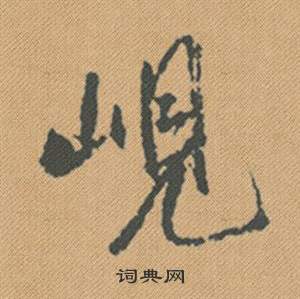 峴
词典网